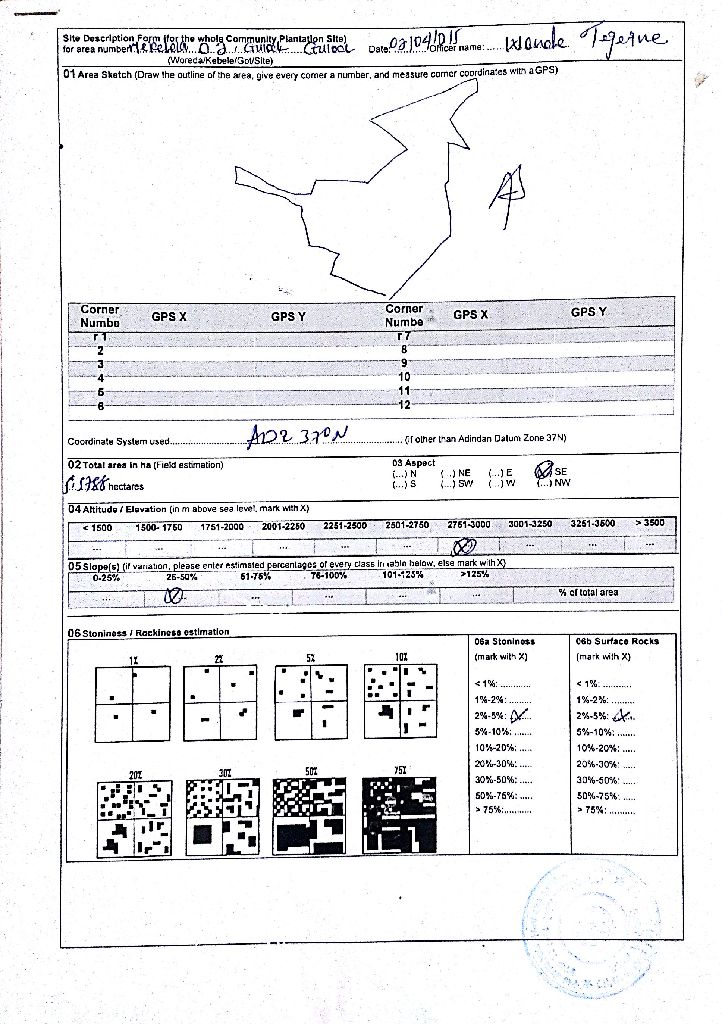 Site Description Form (for the whole Community Plantation Site)
for area number Date: 02/04/015 Officer name: ...... Wonde Tegegne
(Woreda/Kebele/Got/Site)
01 Area Sketch (Draw the outline of the area, give every corner a number, and measure corner coordinates with a GPS)
Corner Numbe GPS X GPS Y Corner Numbe GPS X GPS Y
r 1 r 7
2 8
3 9
4 10
5 11
6 12
Coordinate System used AD2 370N (if other than Adindan Datum Zone 37N)
02 Total area in ha (Field estimation) 03 Aspect
(...) N (...) NE (...) E (X) SE
5.5788 hectares (...) S (...) SW (...) W (...) NW
04 Altitude / Elevation (in m above sea level, mark with X)
< 1500 1500-1750 1751-2000 2001-2250 2251-2500 2501-2750 2751-3000 3001-3250 3251-3500 > 3500
... ... ... ... ... ... X ... ... ...
05 Slope(s) (if variation, please enter estimated percentages of every class in table below, else mark with X)
0-25% 25-50% 51-75% 76-100% 101-125% >125%
... X ... ... ... ... % of total area
06 Stoniness / Rockiness estimation
1% 2% 5% 10%
20% 30% 50% 75%
06a Stoniness
(mark with X)
< 1%: ...........
1%-2%: ......
2%-5%: X
5%-10%: ......
10%-20%: .....
20%-30%: .....
30%-50%: .....
50%-75%: .....
> 75%: ..........
06b Surface Rocks
(mark with X)
< 1%: ...........
1%-2%: ......
2%-5%: X
5%-10%: ......
10%-20%: .....
20%-30%: .....
30%-50%: .....
50%-75%: .....
> 75%: ..........